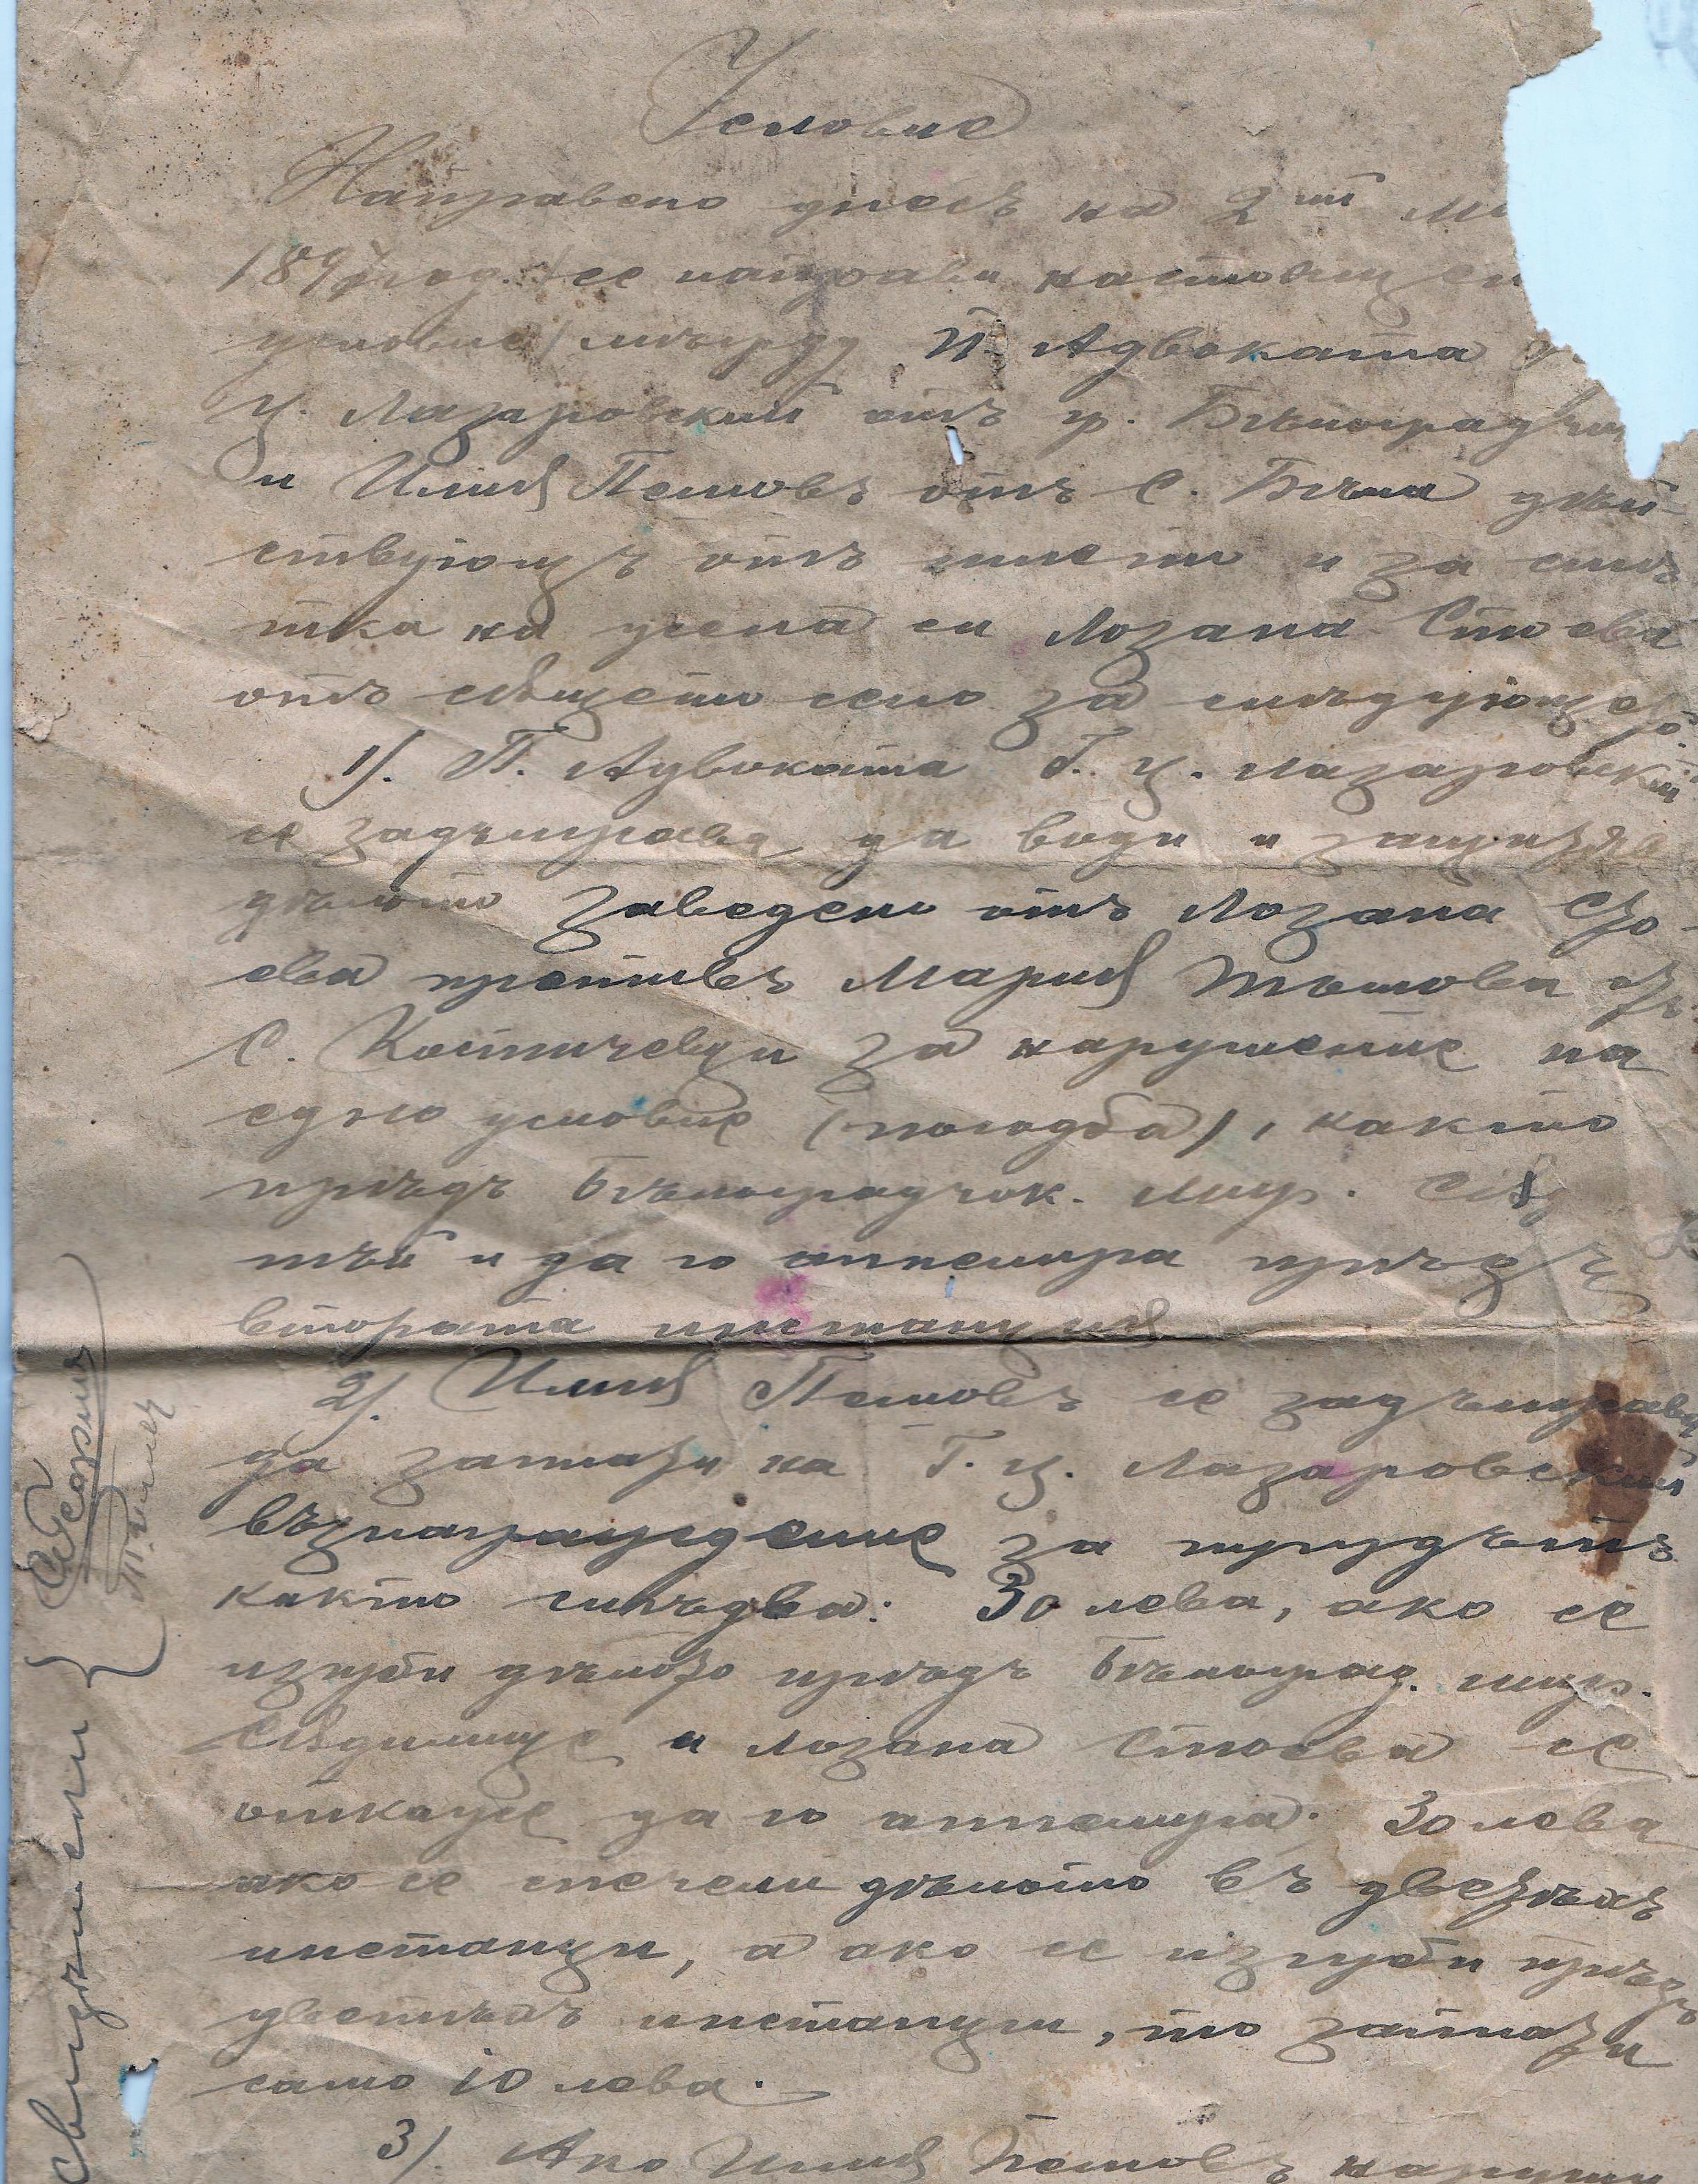 Условие
Направено днесъ на 2ий
189 год. се направи настоящен
условие между П. Адвоката
Ц. Лазаровский отъ гр. Бѣлоградчи
и Илия Петковъ отъ с. Бѣла дѣй-
ствующъ отъ името и за смѣ
тка на жена си Лозана Стоева
отъ сѫщето село за слѣдующето
1). П. Адвоката Г. Ц. Лазаровский
се задължава да води и защищава
дѣлото заведено отъ Лозана Сто-
ева противъ Мария Тошова
с. Костичевци за нарушение на
едно условие (погодба), както
прѣдъ Бѣлоградчок. Мир. Сѫд
тъй и да го аппелира прѣдъ
втората инстанция
2). Илия Петковъ се задължава
да заплати на Г. Ц. Лазаровский
възнаграждение за трудътъ
както слѣдва: 30 лева, ако се
изгуби дѣлото прѣдъ Бѣлоград. мир.
Сѫдилище и Лозана Стоева се
откаже да го аппелира; 30 лева
ако се спечели дѣлото въ двѣтѣхъ
инстанци, а ако се изгуби прѣдъ
инстанции, то заплати
само 10 лева.
3). Ако Илия Петковъ
Свидѣтели